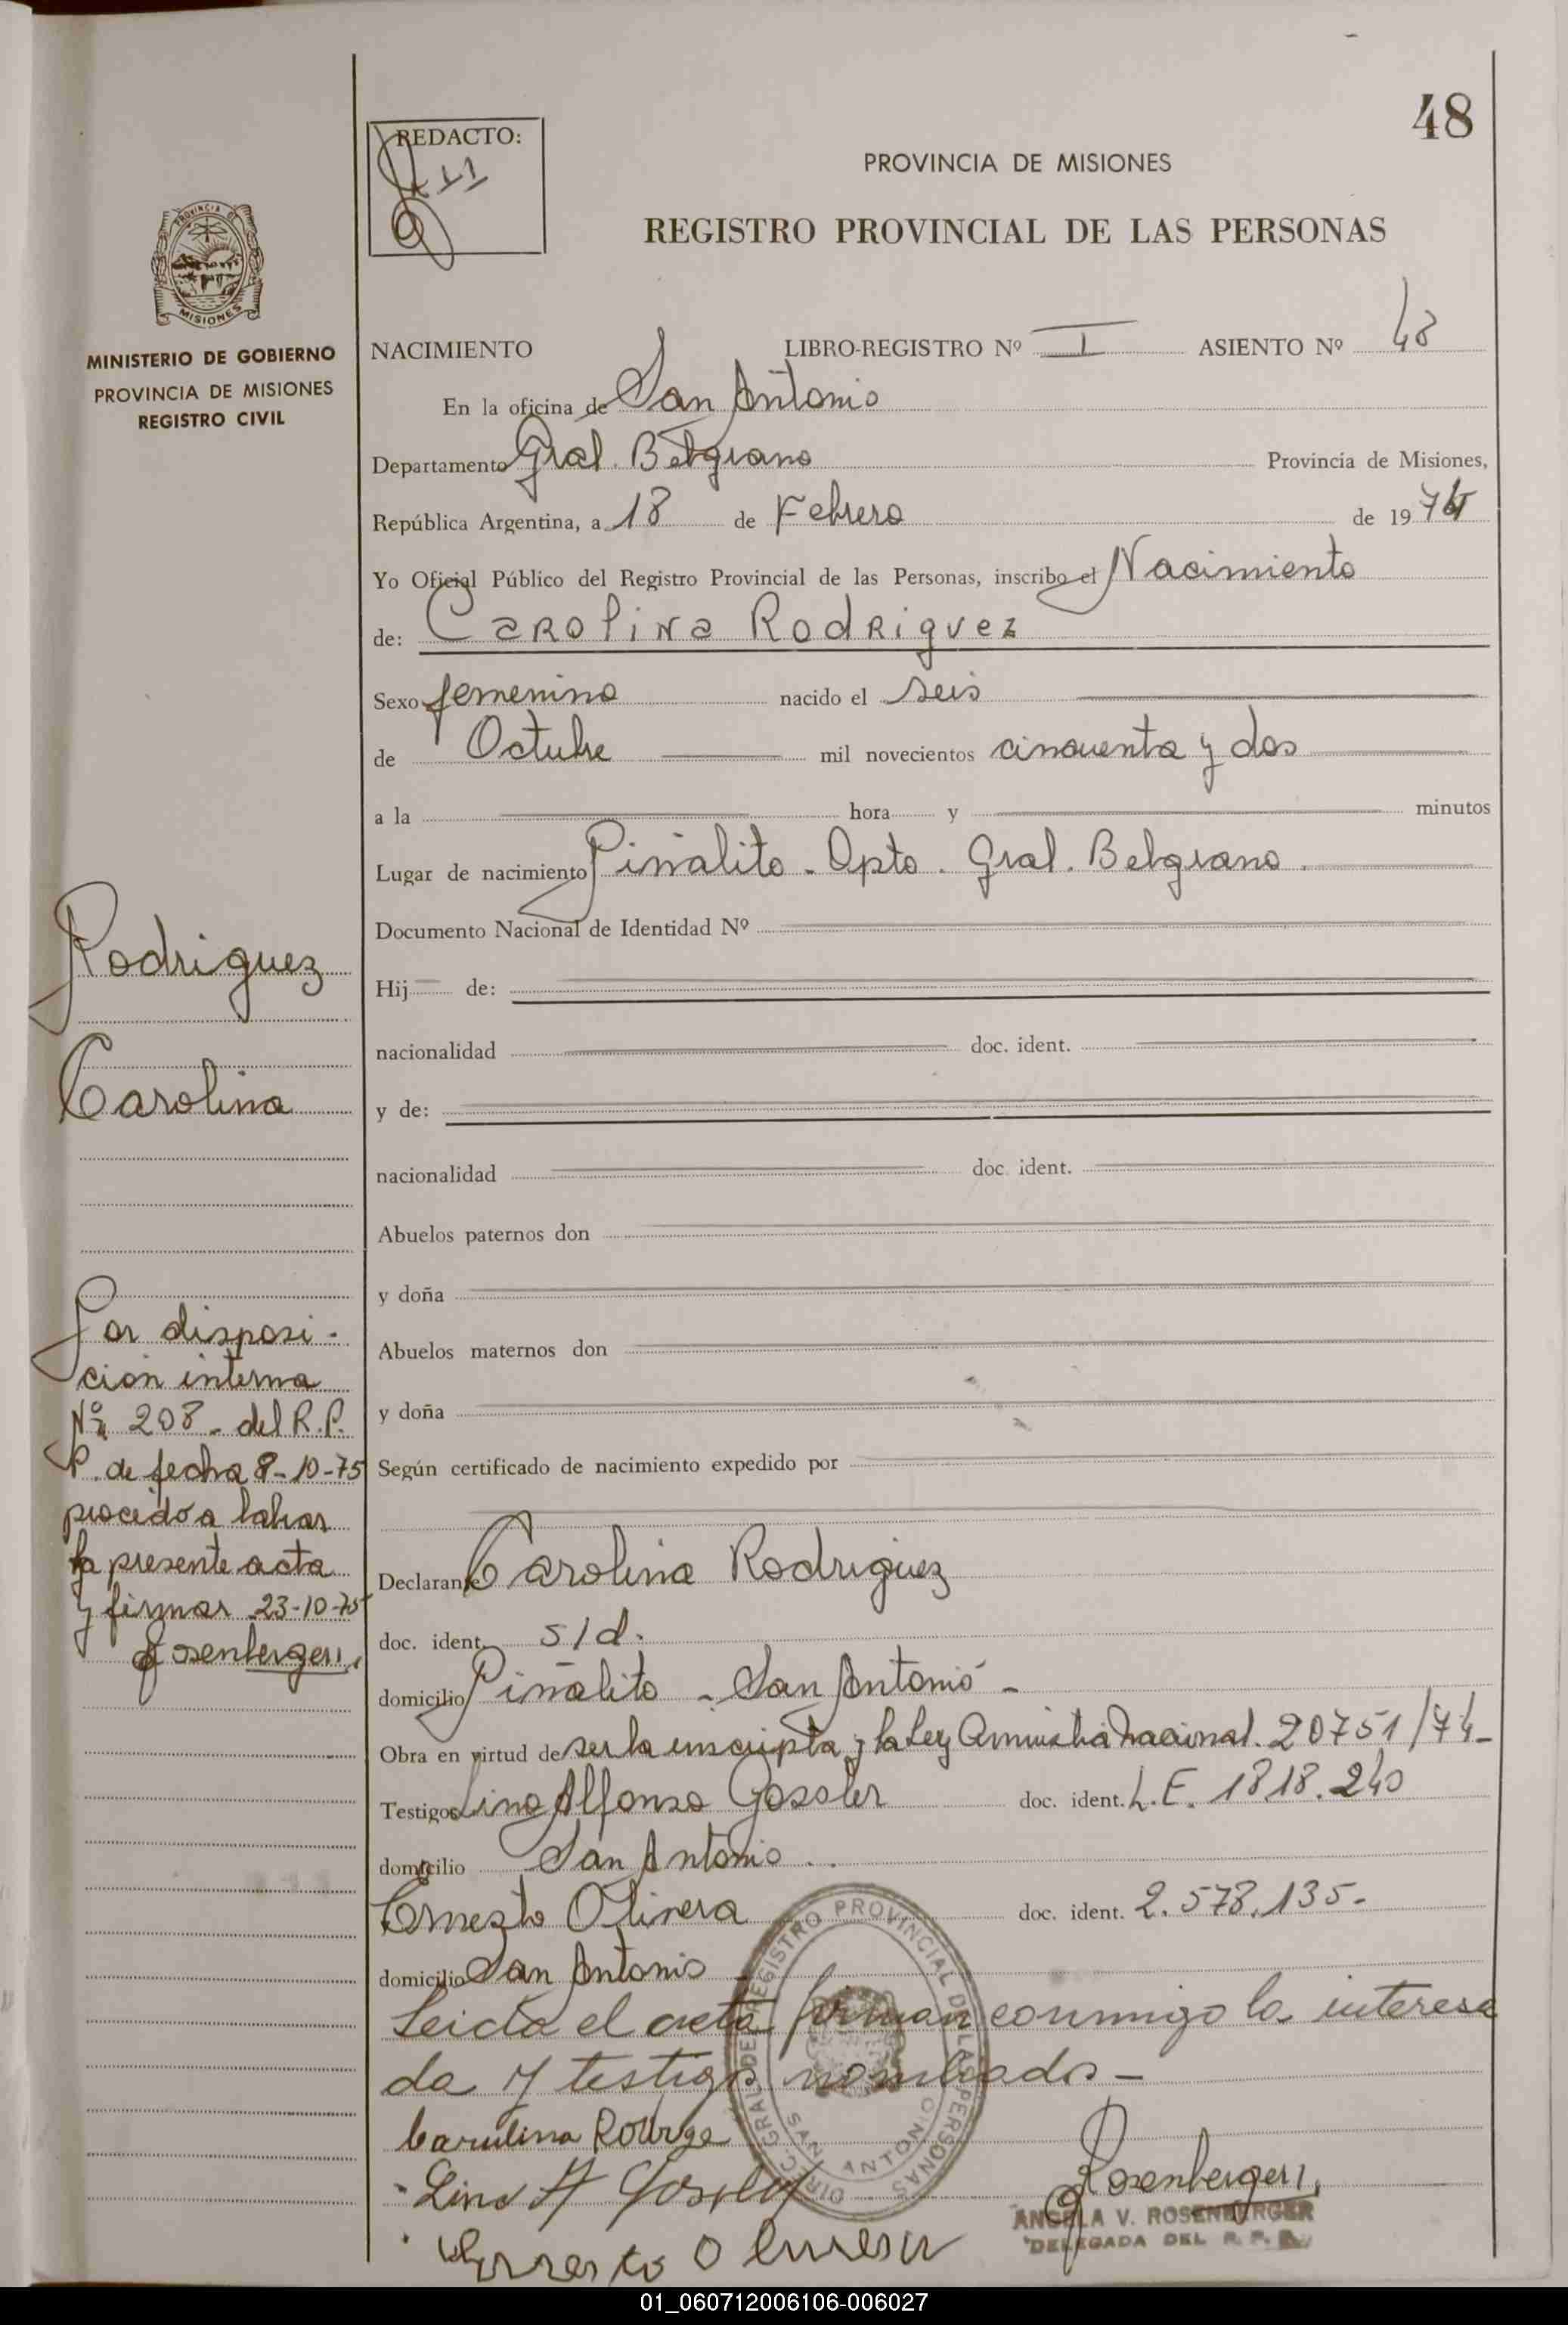 48
REDACTO:
PROVINCIA DE MISIONES
REGISTRO PROVINCIAL DE LAS PERSONAS
PROVINCIA DE
MISIONES
MINISTERIO DE GOBIERNO
PROVINCIA DE MISIONES
REGISTRO CIVIL
NACIMIENTO LIBRO-REGISTRO Nº I ASIENTO Nº 48
En la oficina de San Antonio
Departamento Gral. Belgrano Provincia de Misiones,
República Argentina, a 18 de Febrero de 19
Yo Oficial Público del Registro Provincial de las Personas, inscribo el Nacimiento
de: Carolina Rodriguez
Sexo femenino nacido el seis
de Octubre mil novecientos cincuenta y dos
a la hora y minutos
Lugar de nacimiento Piñalito - Dpto. Gral. Belgrano.
Documento Nacional de Identidad Nº
Hij de:
nacionalidad doc. ident.
y de:
nacionalidad doc. ident.
Abuelos paternos don
y doña
Abuelos maternos don
y doña
Según certificado de nacimiento expedido por
Declarante Carolina Rodriguez
doc. ident. s/d.
domicilio Piñalito - San Antonio -
Obra en virtud de ser la inscripta y la Ley Amnistia Nacional. 20751/74-
Testigos Lino Alfonso Gossler doc. ident. L.E. 1818.240
domicilio San Antonio
Ernesto Olivera doc. ident. 2.578.135-
domicilio San Antonio
Leida el acta firman conmigo la interesa
da y testigos nombrados -
Rodriguez
Carolina
Por disposi-
ción interna
Nº 208 - del R.P.
P. de fecha 8-10-75
procedo a labrar
la presente acta
y firmar 23-10-75
Rosenberger
DIRECC. GRAL. DEL REGISTRO PROVINCIAL DE LAS PERSONAS
SAN ANTONIO
Lino A Gossler
Rosenberger
ANGELA V. ROSENBERGER
DELEGADA DEL R. P. P.
01_060712006106-006027